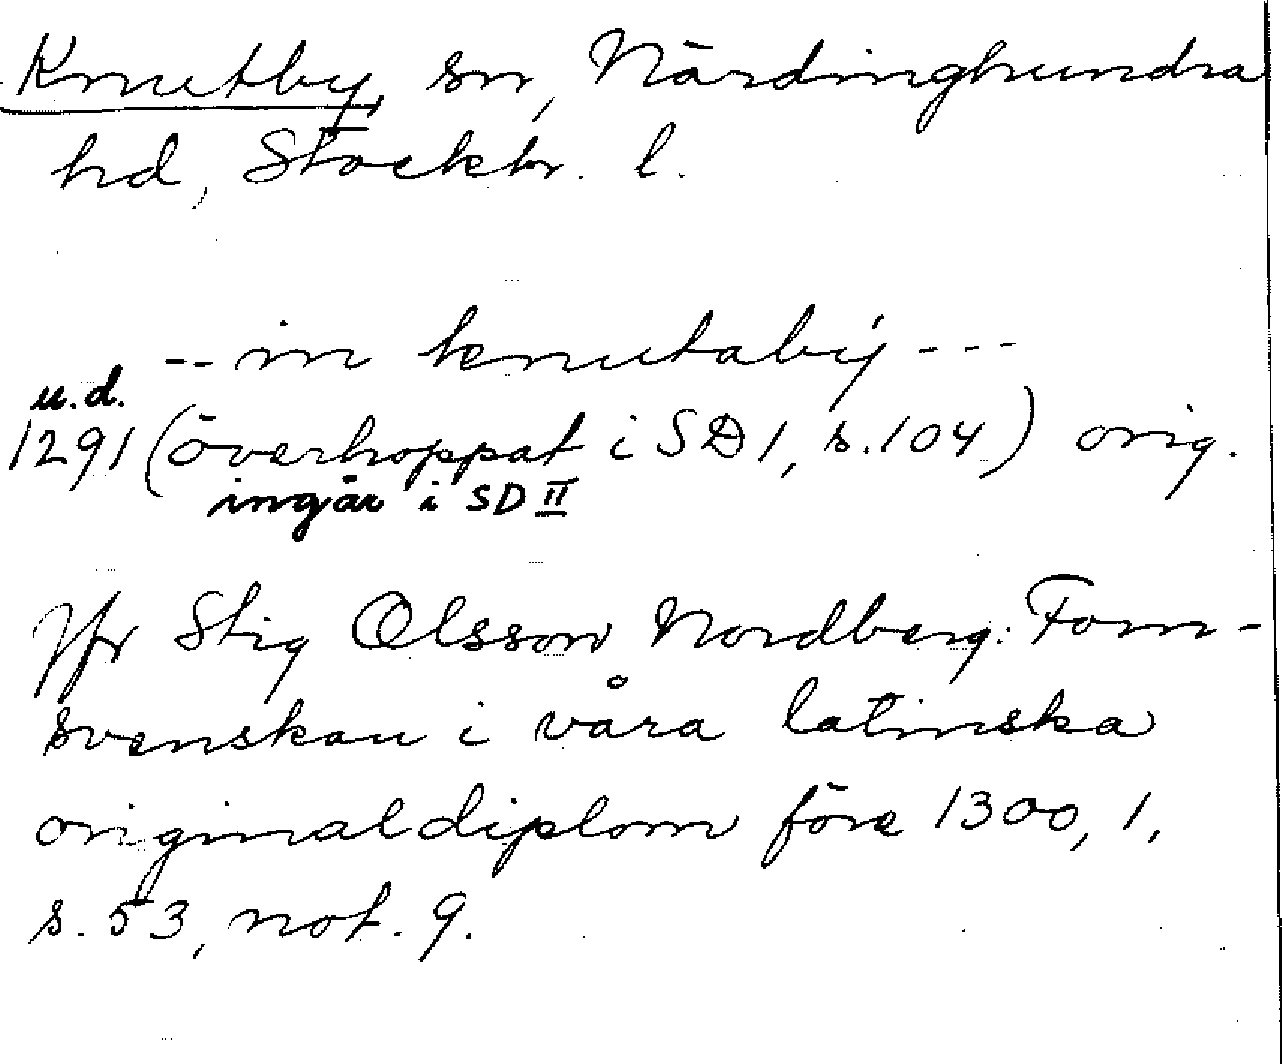 Knutby, sn, Närdinghundra
hd, Stockh. l.
-- in knutabÿ ---
u.d.
1291 (överhoppat i SD 1, s. 104) orig.
ingår i SD II
Jfr Stig Olsson Nordberg: Forn-
svenskan i våra latinska
originaldiplom före 1300, 1,
s. 53, not. 9.